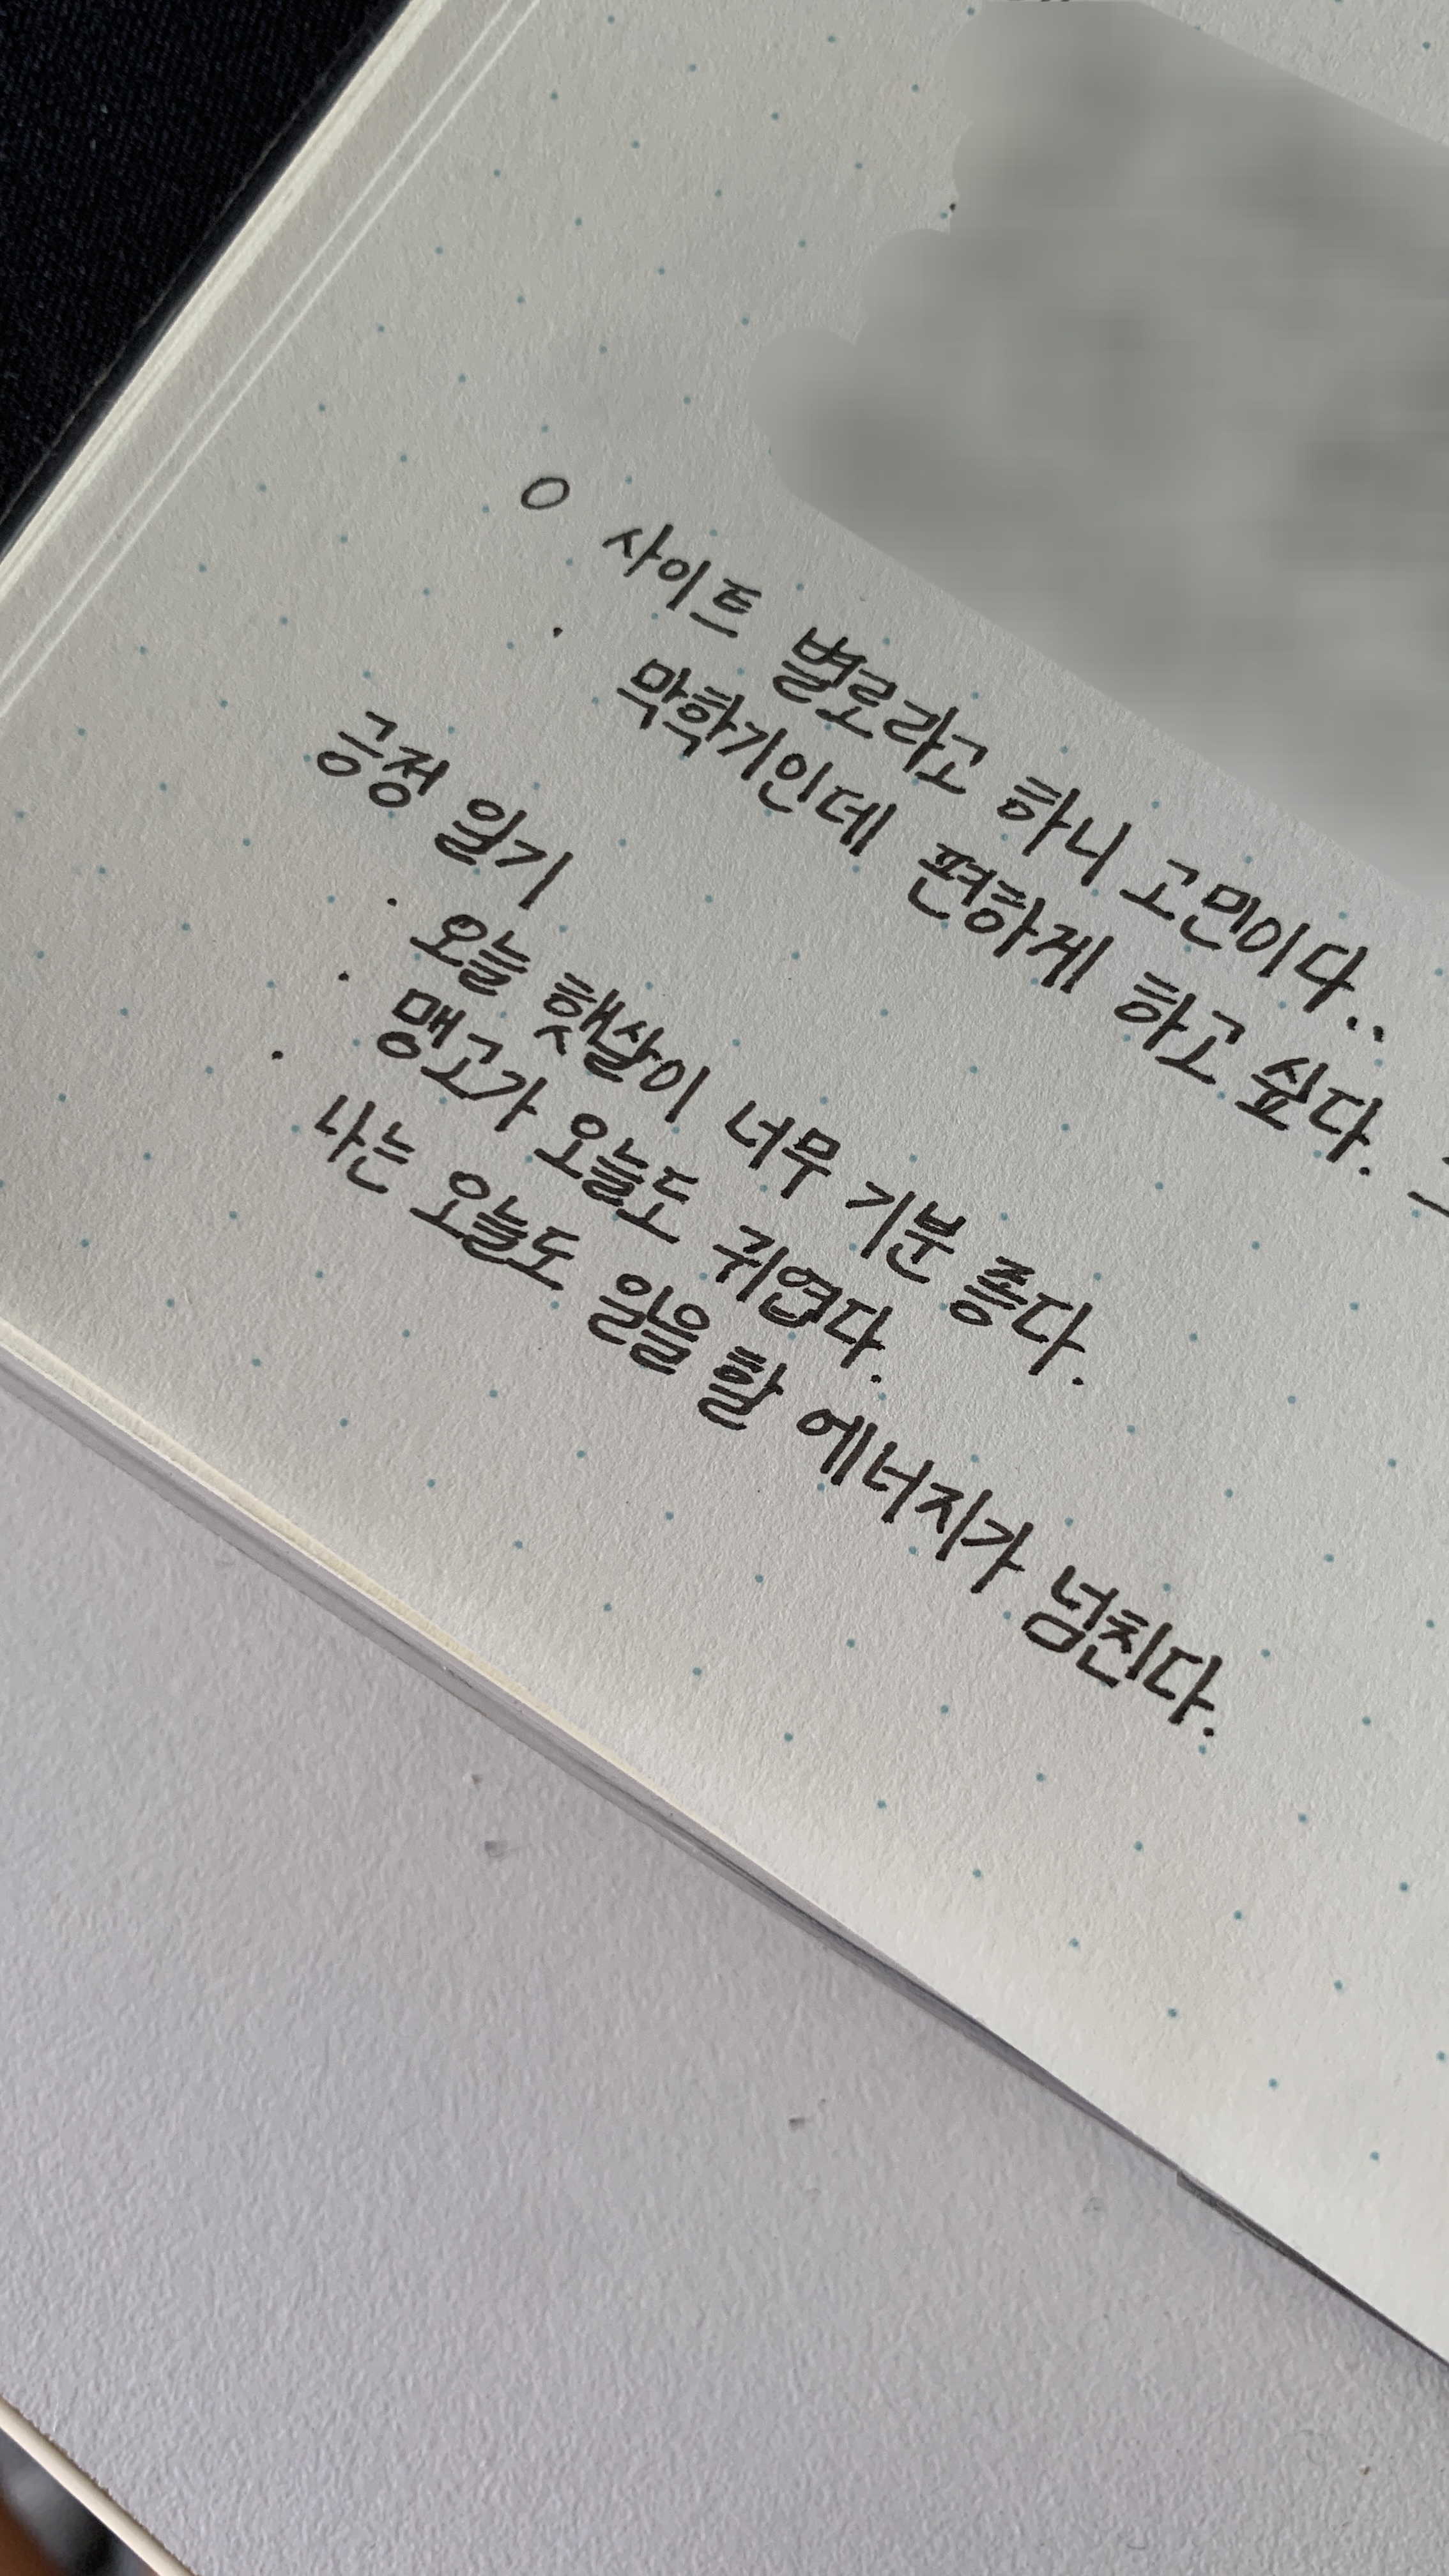 ○ 사이트 별로라고 하니 고민이다..
· 막학기인데 편하게 하고 싶다.
긍정 일기
· 오늘 햇살이 너무 기분 좋다.
· 맹고가 오늘도 귀엽다.
· 나는 오늘도 일을 할 에너지가 넘친다.